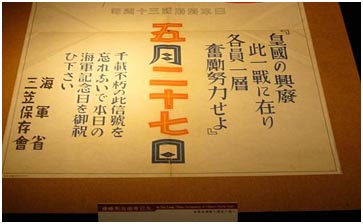 『皇國の興廢
此一戰に在り
各員一層
奮勵努力せよ』
五月二十七日
千載不朽の此信號を
忘れないで本日の
海軍記念日を御祝
ひ下さい
海軍省
三笠保存會